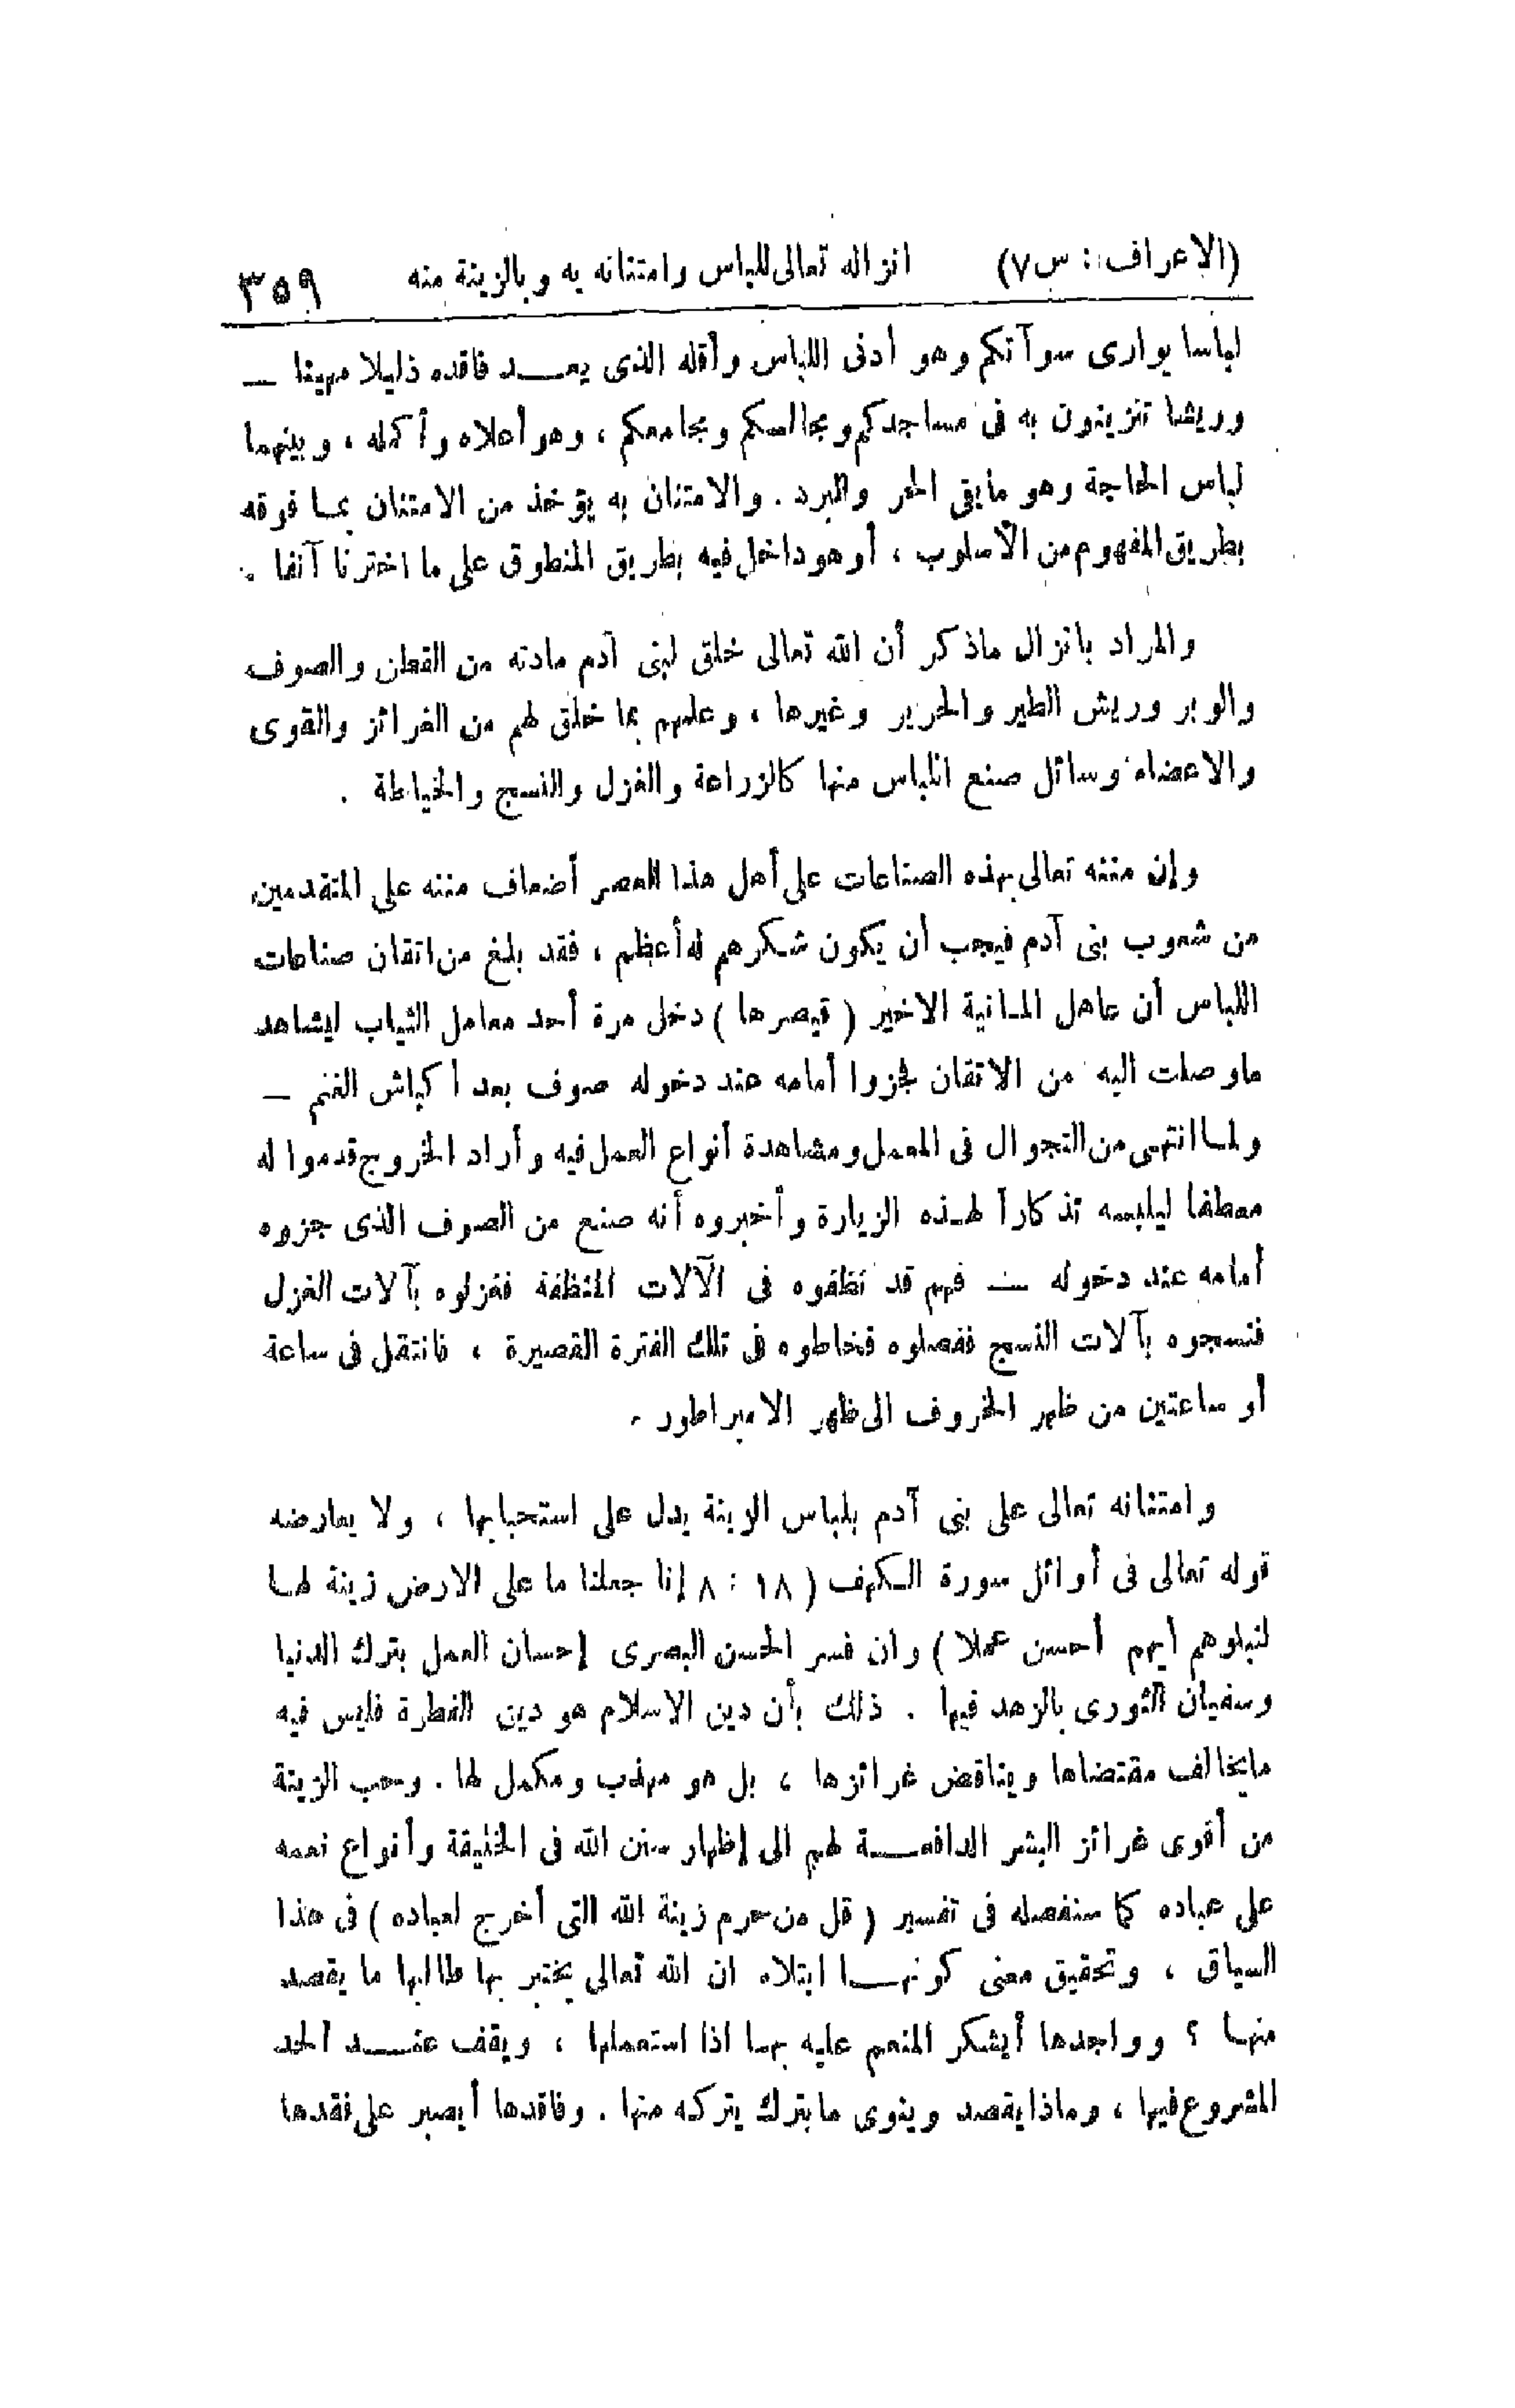 (الاعراف: س٧) انزاله تعالى للباس وامتنانه به وبالزينة منه ٣٥٩
لباسا يوارى سوآتكم وهو أدنى اللباس وأقله الذى يعـــد فاقده ذليلا مهينا —
وريشا تتزينون به فى مساجدكم ومجالسكم ومجامعكم ، وهو أعلاه وأكمله ، وبينهما
لباس الحاجة وهو ما يقى الحر والبرد . والامتنان به يؤخذ من الامتنان بما فوقه
بطريق المفهوم من الأسلوب ، أو هو داخل فيه بطريق المنطوق على ما اخترنا آنفا .
والمراد بانزال ماذكر أن الله تعالى خلق لبنى آدم مادته من القطن والصوف
والوبر وريش الطير والحرير وغيرها ، وعلمهم بما خلق لهم من الغرائز والقوى
والاعضاء وسائل صنع اللباس منها كالزراعة والغزل والنسج والخياطة .
وإن مننه تعالى بهذه الصناعات على أهل هذا العصر أضعاف مننه على المتقدمين
من شعوب بنى آدم فيجب أن يكون شكرهم له أعظم ، فقد بلغ من اتقان صناعات
اللباس أن عاهل المانية الاخير ( قيصرها ) دخل مرة أحد معامل الثياب ليشاهد
ماوصلت اليه من الاتقان فجزوا أمامه عند دخوله صوف بعد أكباش الغنم —
ولما انتهى من التجوال فى المعمل ومشاهدة أنواع العمل فيه وأراد الخروج قدموا له
معطفا ليلبسه تذكاراً لهذه الزيارة وأخبروه أنه صنع من الصوف الذى جزوه
أمامه عند دخوله — فهم قد نظفوه فى الآلات المنظفة فغزلوه بآلات الغزل
فنسجوه بآلات النسج ففصلوه فخاطوه فى تلك الفترة القصيرة ، فانتقل فى ساعة
أو ساعتين من ظهر الخروف الى ظهر الامبراطور .
وامتنانه تعالى على بنى آدم بلباس الزينة يدل على استحبابها ، ولا يعارضه
قوله تعالى فى أوائل سورة الكهف ( ١٨ : ٨ إنا جعلنا ما على الارض زينة لها
لنبلوهم أيهم أحسن عملا ) وان فسر الحسن البصرى إحسان العمل بترك الدنيا
وسفيان الثورى بالزهد فيها . ذلك بأن دين الاسلام هو دين الفطرة فليس فيه
مايخالف مقتضاها ويناقض غرائزها ، بل هو مهذب ومكمل لها . وحب الزينة
من أقوى غرائز البشر الدافعـــة لهم الى إظهار سنن الله فى الخليقة وأنواع نعمه
على عباده كما سنفصله فى تفسير ( قل من حرم زينة الله التى أخرج لعباده ) فى هذا
السياق ، وتحقيق معنى كونهـــا ابتلاء ان الله تعالى يختبر بها طالبها ما يقصد
منها ؟ وواجدها أيشكر المنعم عليه بها اذا استعملها ، ويقف عنـــد الحد
المشروع فيها ، وماذا يقصد وينوى ما بترك يتركه منها . وفاقدها أيصبر على فقدها